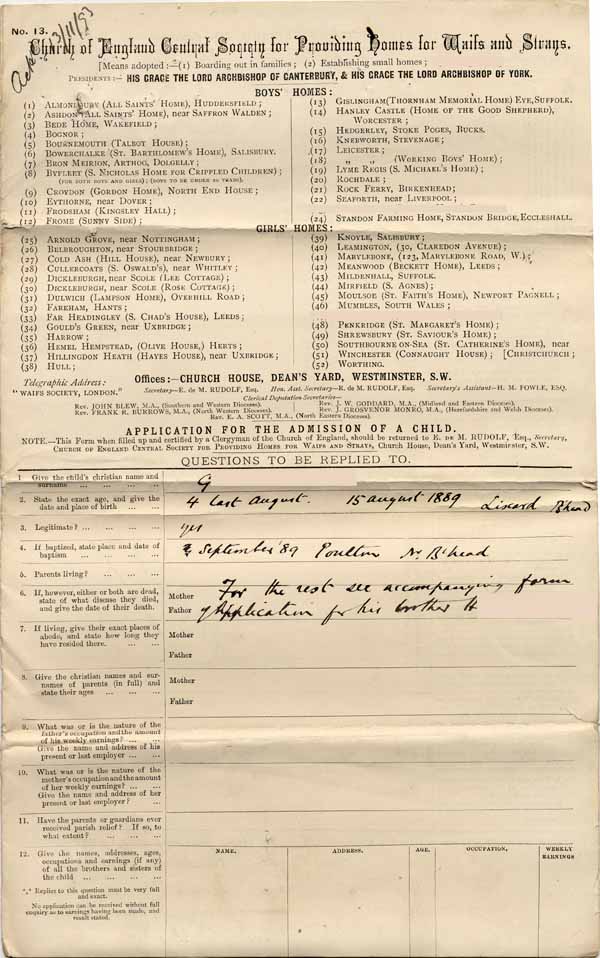 No. 13.
Ack 3/11/93
Church of England Central Society for Providing Homes for Waifs and Strays.
[Means adopted:—(1) Boarding out in families; (2) Establishing small homes;
Presidents:— HIS GRACE THE LORD ARCHBISHOP OF CANTERBURY, & HIS GRACE THE LORD ARCHBISHOP OF YORK.
BOYS' HOMES:
(1) Almondbury (All Saints' Home), Huddersfield;
(2) Ashdon (All Saints' Home), near Saffron Walden;
(3) Bede Home, Wakefield;
(4) Bognor;
(5) Bournemouth (Talbot House);
(6) Bowerchalke (St. Bartholomew's Home), Salisbury.
(7) Bron Meirion, Arthog, Dolgelly;
(8) Byfleet (S. Nicholas Home for Crippled Children);
(for both boys and girls); (boys to be under 10 years).
(9) Croydon (Gordon Home), North End House;
(10) Eythorne, near Dover;
(11) Frodsham (Kingsley Hall);
(12) Frome (Sunny Side);
(13) Gislingham (Thornham Memorial Home) Eye, Suffolk.
(14) Hanley Castle (Home of the Good Shepherd),
Worcester;
(15) Hedgerley, Stoke Poges, Bucks.
(16) Knebworth, Stevenage;
(17) Leicester;
(18) „ „ (Working Boys' Home);
(19) Lyme Regis (S. Michael's Home);
(20) Rochdale;
(21) Rock Ferry, Birkenhead;
(22) Seaforth, near Liverpool;
(24) Standon Farming Home, Standon Bridge, Eccleshall.
GIRLS' HOMES:
(25) Arnold Grove, near Nottingham;
(26) Bilbroughton, near Stourbridge;
(27) Cold Ash (Hill House), near Newbury;
(28) Cullercoats (S. Oswald's), near Whitley;
(29) Dickleburgh, near Scole (Lee Cottage);
(30) Dickleburgh, near Scole (Rose Cottage);
(31) Dulwich (Lampson Home), Overhill Road;
(32) Fareham, Hants;
(33) Far Headingley (S. Chad's House), Leeds;
(34) Gould's Green, near Uxbridge;
(35) Harrow;
(36) Hemel Hempstead, (Olive House,) Herts;
(37) Hillingdon Heath (Hayes House), near Uxbridge;
(38) Hull;
(39) Knoyle, Salisbury;
(40) Leamington, (30, Claredon Avenue);
(41) Marylebone, (123, Marylebone Road, W.);
(42) Meanwood (Beckett Home), Leeds;
(43) Mildenhall, Suffolk.
(44) Mirfield (S. Agnes);
(45) Moulsoe (St. Faith's Home), Newport Pagnell;
(46) Mumbles, South Wales;
(48) Penkridge (St. Margaret's Home);
(49) Shrewsbury (St. Saviour's Home);
(50) Southbourne-on-Sea (St. Catherine's Home), near
(51) Winchester (Connaught House); [Christchurch;
(52) Worthing.
Telegraphic Address:
"WAIFS SOCIETY, LONDON."
Offices:—CHURCH HOUSE, DEAN'S YARD, WESTMINSTER, S.W.
Secretary—E. de M. RUDOLF, Esq. Hon. Asst. Secretary—R. de M. RUDOLF, Esq. Secretary's Assistant—H. M. FOWLE, ESQ.
Clerical Deputation Secretaries—
Rev. JOHN BLEW, M.A., (Southern and Western Dioceses).
Rev. J. W. GODDARD, M.A., (Midland and Eastern Dioceses).
Rev. FRANK R. BURROWS, M.A., (North Western Dioceses).
Rev. J. GROSVENOR MONRO, M.A., (Herefordshire and Welsh Dioceses).
Rev. E. A. SCOTT, M.A., (North Eastern Dioceses).
APPLICATION FOR THE ADMISSION OF A CHILD.
NOTE.—This Form when filled up and certified by a Clergyman of the Church of England, should be returned to E. de M. RUDOLF, Esq., Secretary,
Church of England Central Society for Providing Homes for Waifs and Strays, Church House, Dean's Yard, Westminster, S.W.
QUESTIONS TO BE REPLIED TO.
1 Give the child's christian name and
surname ... ... ... ...
G
2. State the exact age, and give the
date and place of birth ... ...
4 last august. 15 august 1889 Liscard B'head
3. Legitimate? ... ... ... ...
yes
4. If baptized, state place and date of
baptism ... ... ... ...
September '89 Poulton Nr B'head
5. Parents living? ... ... ...
6. If, however, either or both are dead,
state of what disease they died,
and give the date of their death.
Mother
Father
For the rest see accompanying form
of Application for his brother H
7. If living, give their exact places of
abode, and state how long they
have resided there. ... ...
Mother
Father
8. Give the christian names and sur-
names of parents (in full) and
state their ages ... ... ...
Mother
Father
9. What was or is the nature of the
father's occupation and the amount
of his weekly earnings? ... ...
Give the name and address of his
present or last employer ... ...
10. What was or is the nature of the
mother's occupation and the amount
of her weekly earnings? ... ...
Give the name and address of her
present or last employer? ...
11. Have the parents or guardians ever
received parish relief? If so, to
what extent? ... ... ...
12. Give the names, addresses, ages,
occupations and earnings (if any)
of all the brothers and sisters of
the child ... ... ... ...
*** Replies to this question must be very full
and exact.
No application can be received without full
enquiry as to earnings having been made, and
result stated.
NAME.
ADDRESS.
AGE.
OCCUPATION.
WEEKLY
EARNINGS